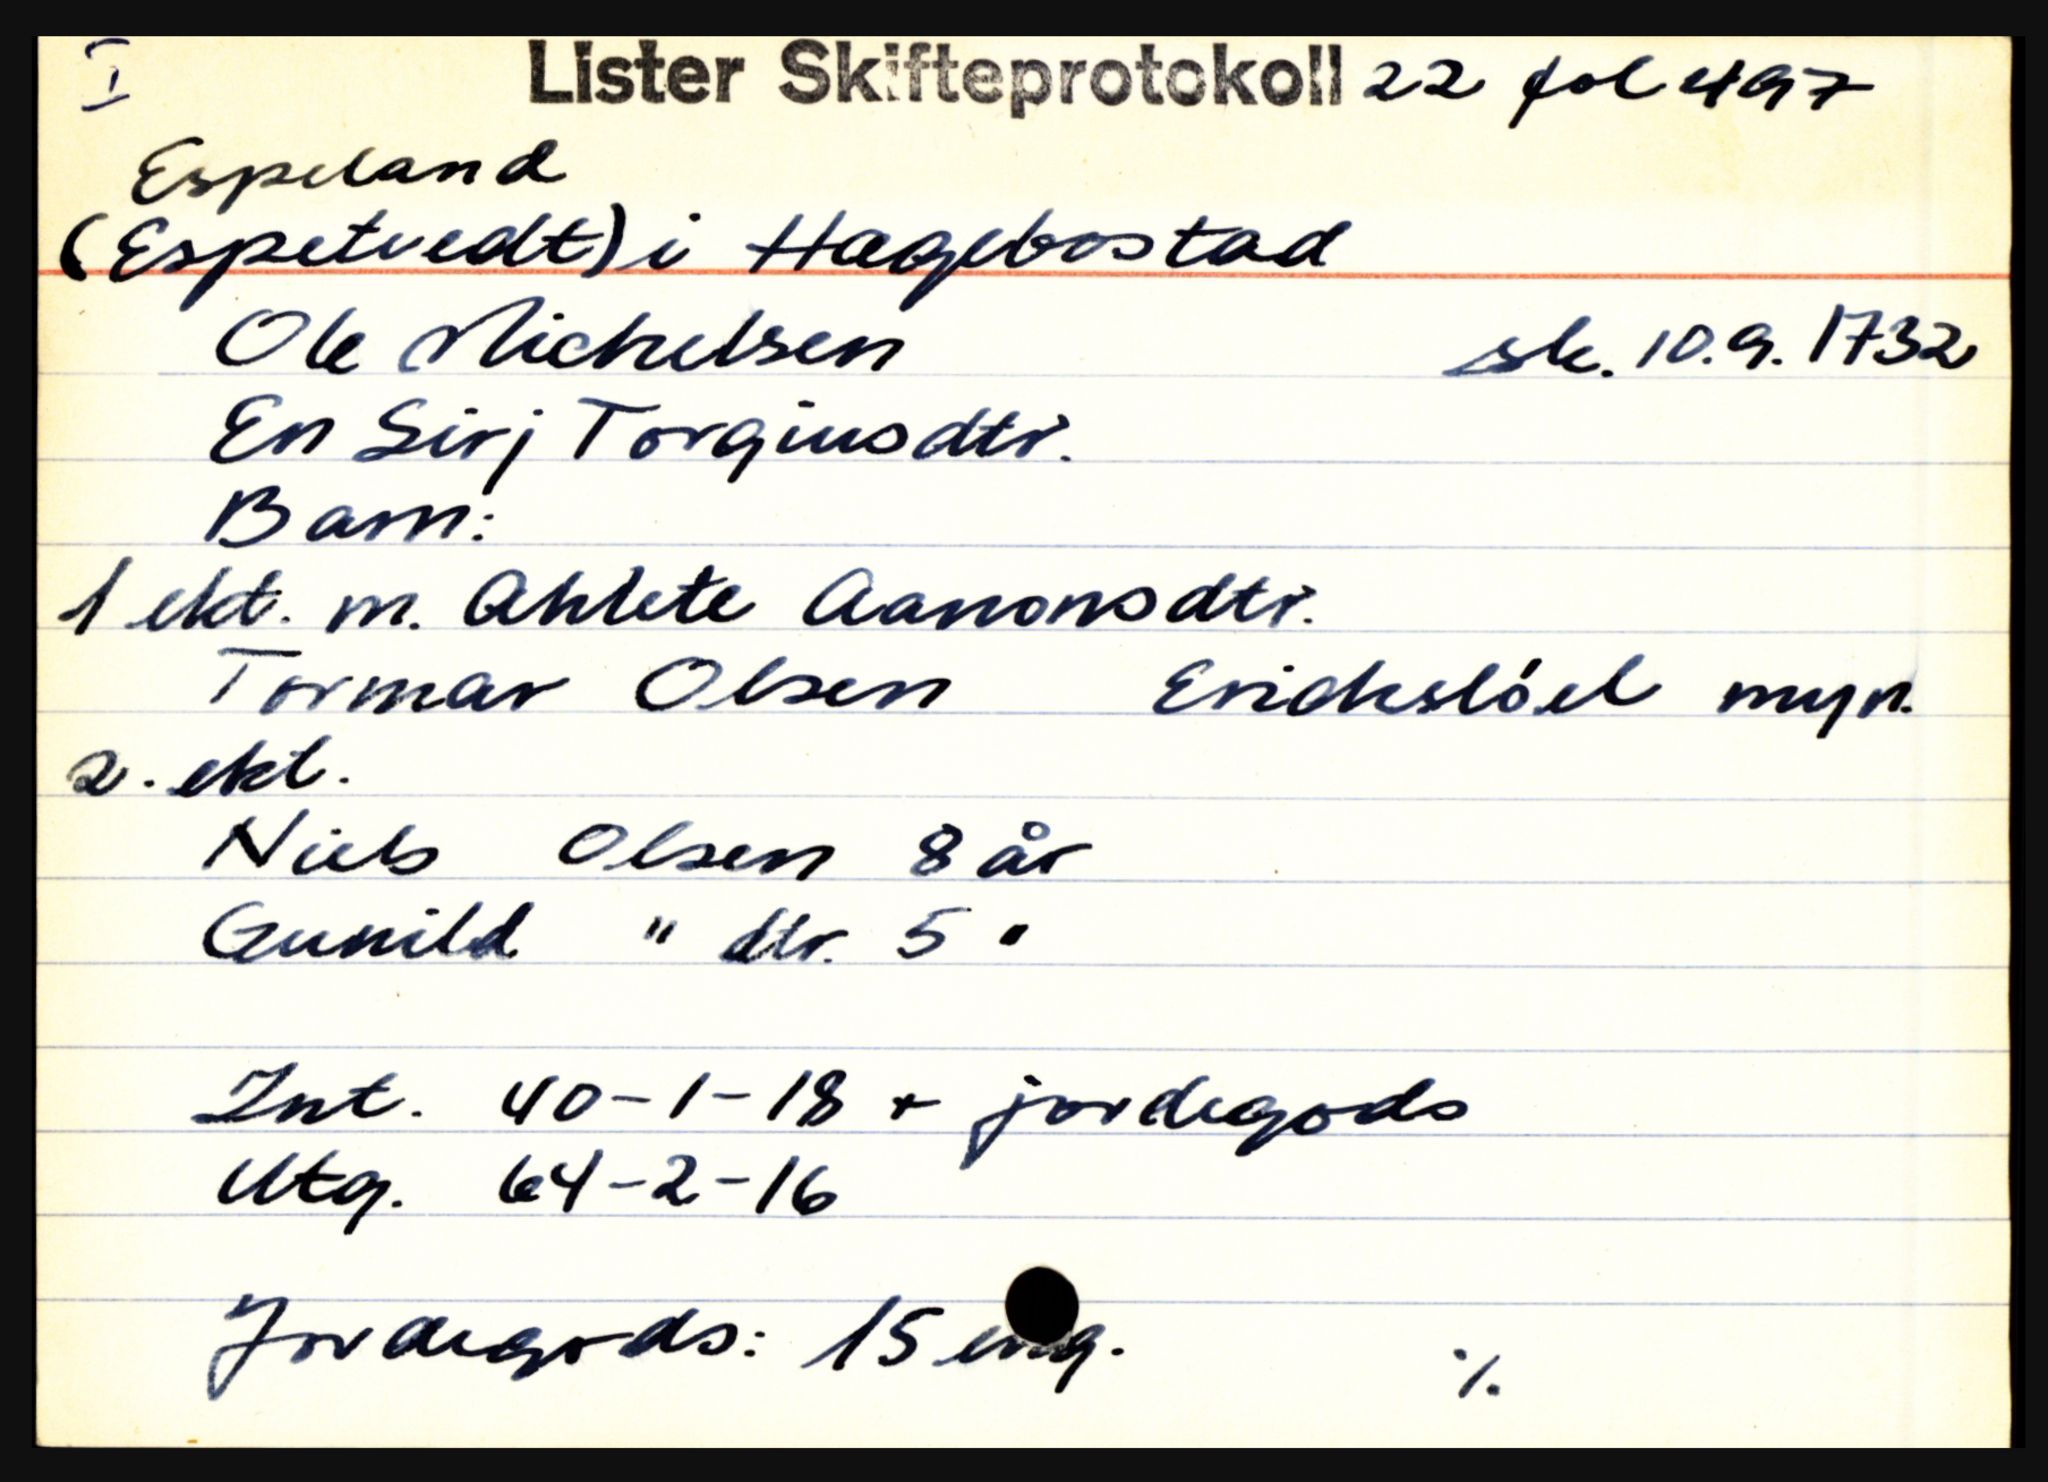 I Lister Skifteprotokoll 22 fol 497
Espeland
(Espetvedt) i Hægebostad
Ole Michelsen sk. 10.9.1732
En Sirj Torgiusdtr.
Barn:
1 ekt. m. Ahlete Aanonsdtr.
Tormar Olsen Erichslöel myn.
2. ekt.
Niels Olsen 8 år
Gunild " dtr. 5 "
Int. 40-1-18 + jordegods
Utg. 64-2-16
Jordegods: 15 eng. ./.